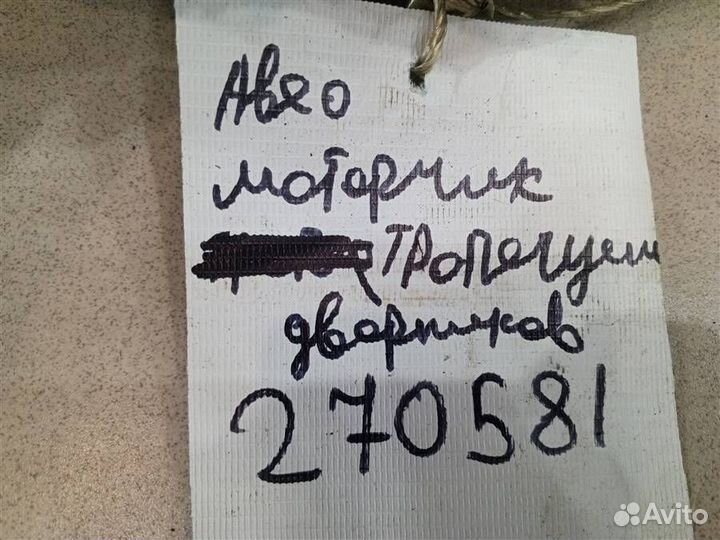 Авео
моторчик
Трапецыи
дворников
270581
Avito